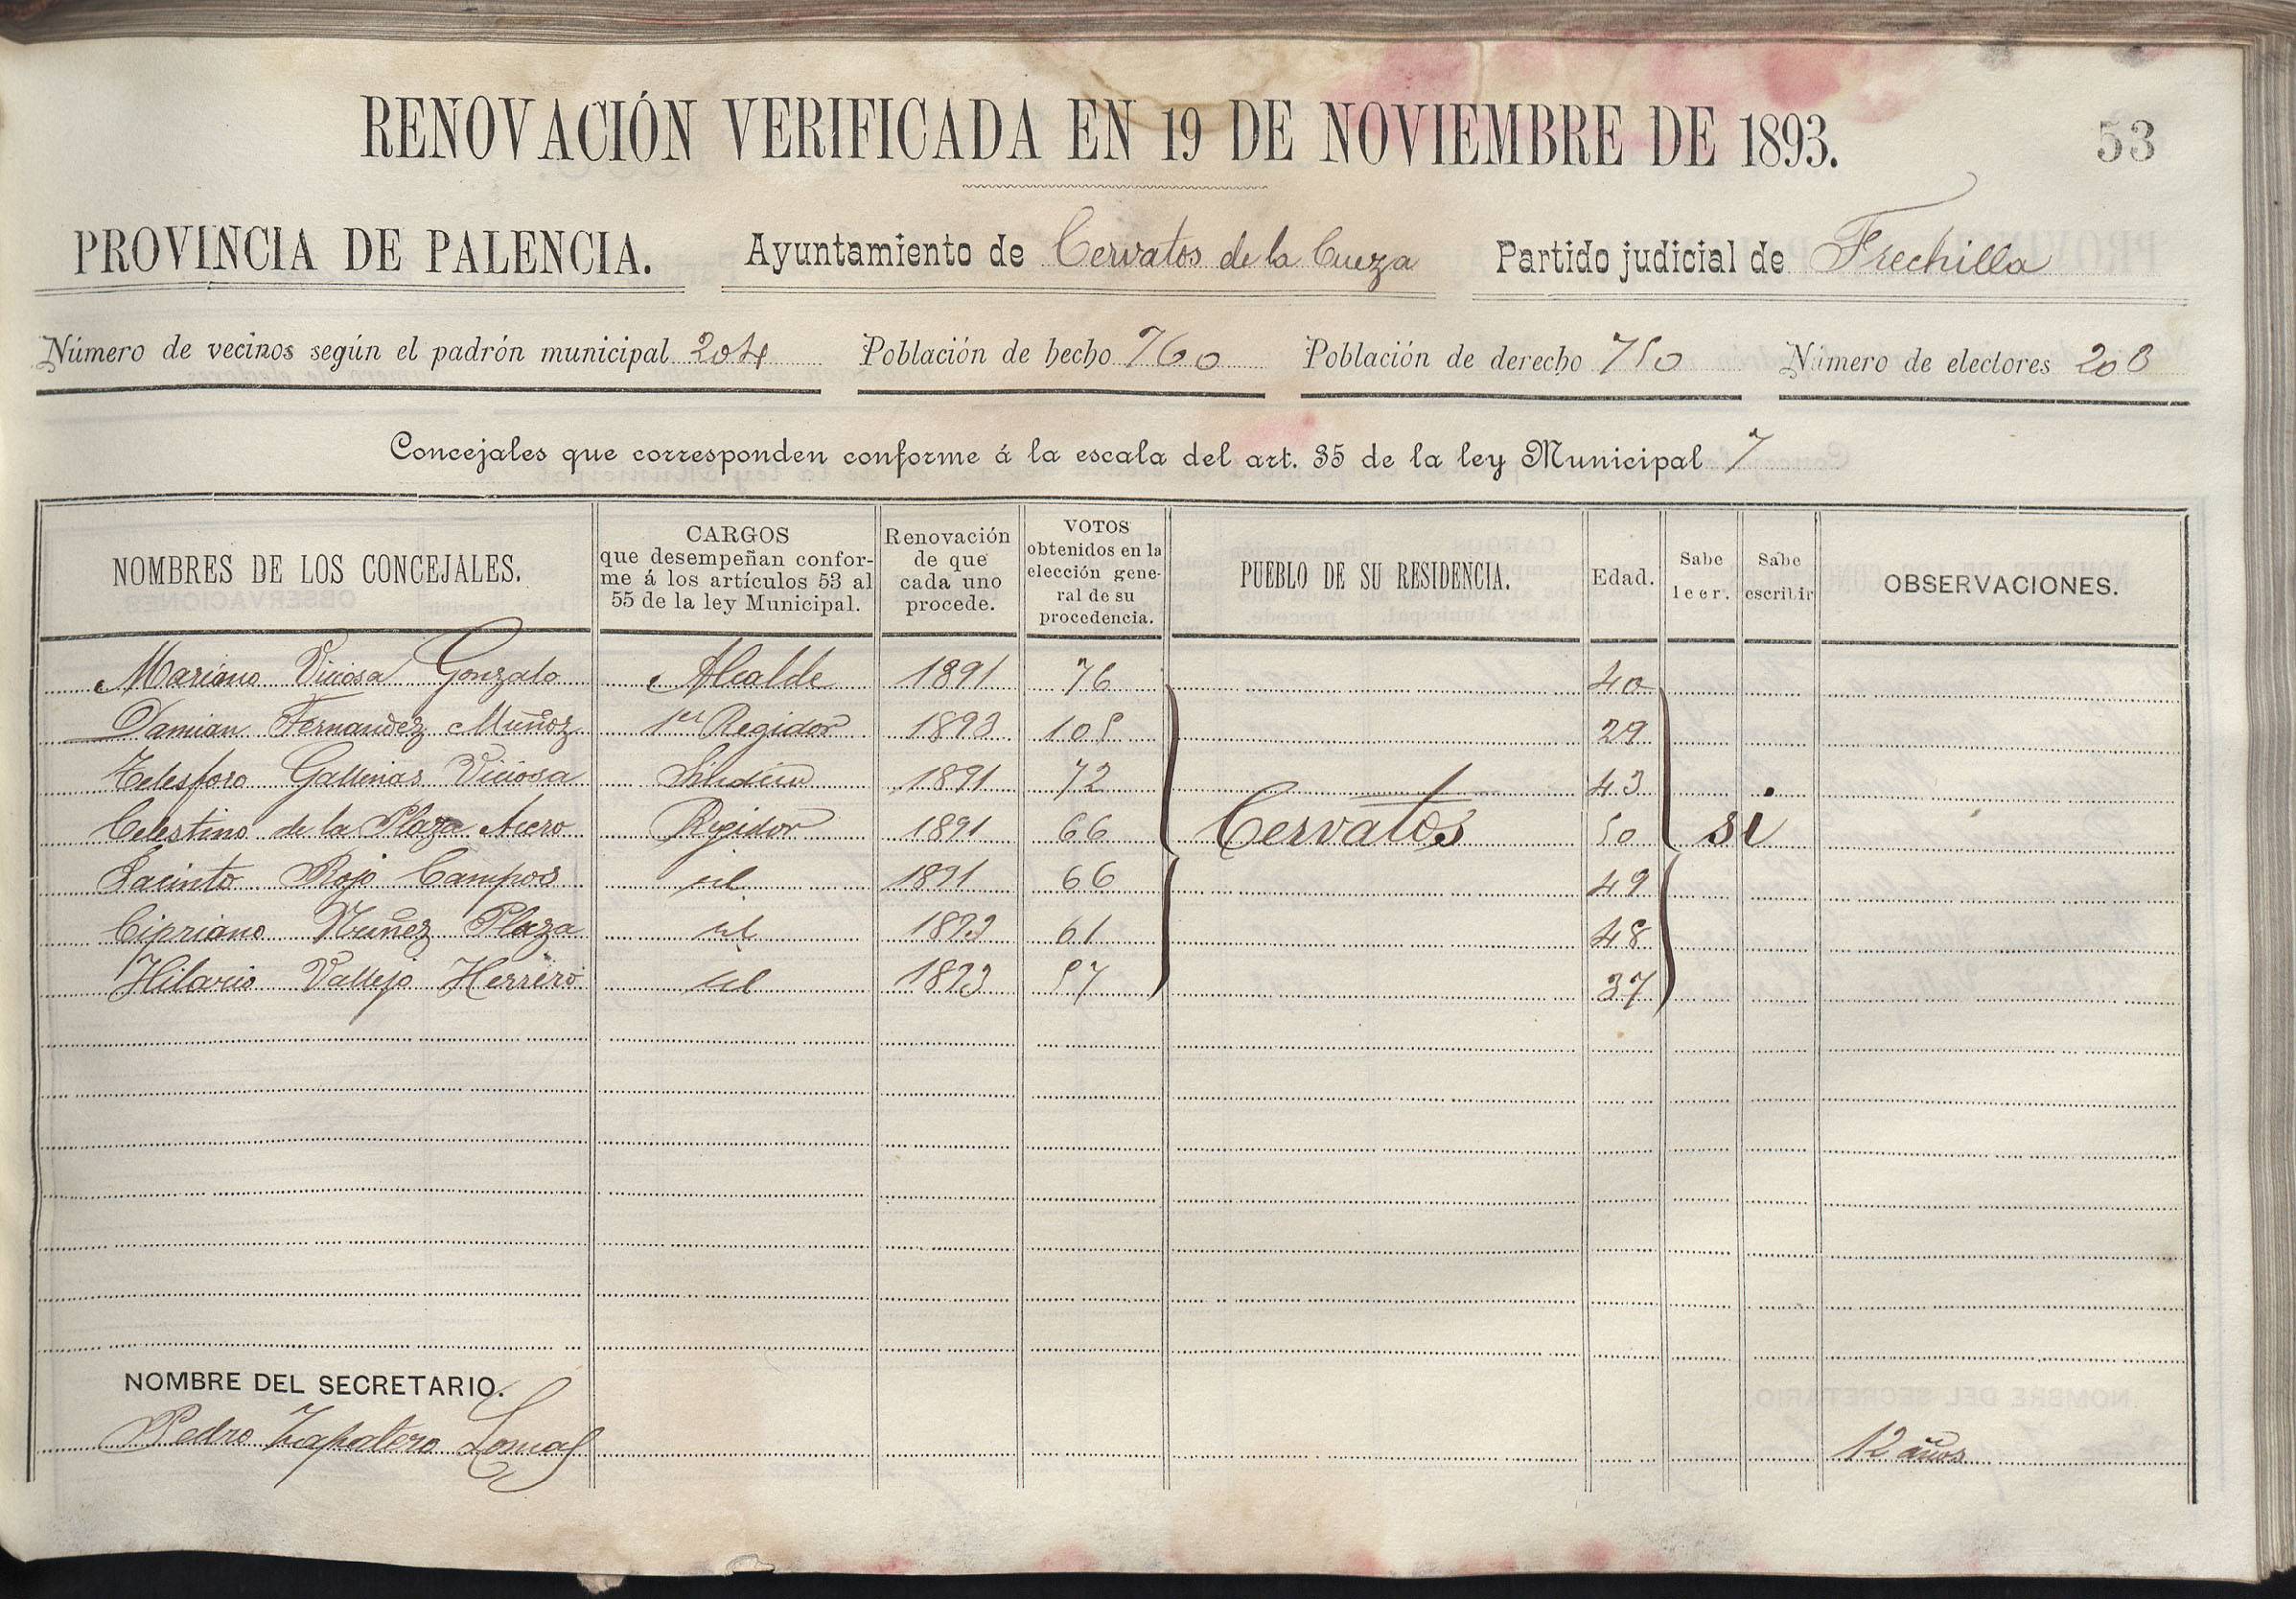 RENOVACIÓN VERIFICADA EN 19 DE NOVIEMBRE DE 1893.
53
PROVINCIA DE PALENCIA. Ayuntamiento de Cervatos de la Cueza Partido judicial de Frechilla
Número de vecinos según el padrón municipal 204 Población de hecho 760 Población de derecho 750 Número de electores 208
Concejales que corresponden conforme á la escala del art. 35 de la ley Municipal 7
NOMBRES DE LOS CONCEJALES.
CARGOS
que desempeñan confor-
me á los artículos 53 al
55 de la ley Municipal.
Renovación
de que
cada uno
procede.
VOTOS
obtenidos en la
elección gene-
ral de su
procedencia.
PUEBLO DE SU RESIDENCIA.
Edad.
Sabe
leer.
Sabe
escribir
OBSERVACIONES.
Mariano Viciosa Gonzalo Alcalde 1891 76 40
Damian Fernandez Muñoz 1er Regidor 1893 105 29
Telesforo Gallinas Viciosa Sindico 1891 72 43
Celestino de la Plaza Acero Regidor 1891 66 Cervatos 50 si
Jacinto Rojo Campos id 1891 66 49
Cipriano Nuñez Plaza id 1893 61 48
Hilario Vallejo Herrero id 1893 57 37
NOMBRE DEL SECRETARIO.
Pedro Zapatero Lomas 12 años